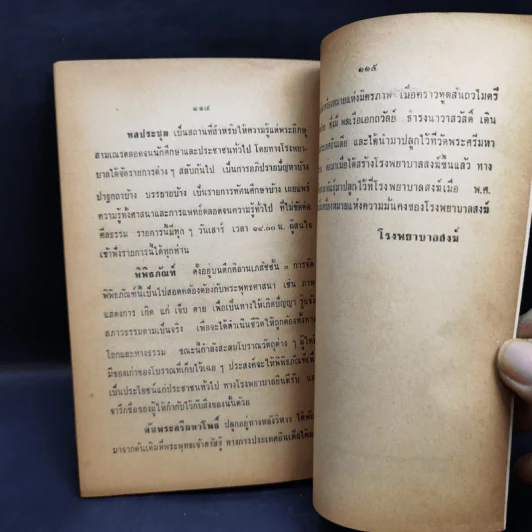 ๑๑๔
หอประชุม เป็นสถานที่สำหรับให้ความรู้แด่พระภิกษุ
สามเณรตลอดจนนักศึกษาและประชาชนทั่วไป โดยทางโรงพยา
บาลได้จัดรายการต่าง ๆ สลับกันไป เป็นการอภิปรายปัญหาบ้าง
ปาฐกถาบ้าง บรรยายบ้าง เป็นรายการทัศนศึกษาบ้าง เผยแพร่
ความรู้ทั้งศาสนาและการแพทย์ตลอดจนความรู้ทั่วไป ที่ไม่ขัดต่อ
ศีลธรรม รายการนี้มีทุก ๆ วันเสาร์ เวลา ๑๔.๐๐ น. ผู้สนใจ
เข้าฟังรายการนี้ได้ทุกท่าน
พิพิธภัณฑ์ ตั้งอยู่บนตึกคิลานเภสัชชั้น ๓ การจัด
พิพิธภัณฑ์นี้เป็นไปสอดคล้องต้องกับพระพุทธศาสนา เช่น ภาพ
แสดงการ เกิด แก่ เจ็บ ตาย เพื่อเป็นทางให้เกิดปัญญา รู้แจ้ง
สภาวธรรมตามเป็นจริง เพื่อจะได้ดำเนินชีวิตให้ถูกต้องทั้งทาง
โลกและทางธรรม ขณะนี้กำลังสะสมโบราณวัตถุต่าง ๆ ผู้ใด
มีของเก่าของโบราณที่เก็บไว้เฉย ๆ ประสงค์จะให้พิพิธภัณฑ์เพื่อ
เป็นประโยชน์แก่ประชาชนทั่วไป ทางโรงพยาบาลยินดีรับ และ
จารึกชื่อของผู้ให้กำกับไว้กับสิ่งของนั้นด้วย
ต้นพระศรีมหาโพธิ์ ปลูกอยู่ทางหลังวิหาร ได้
มาจากต้นเดิมที่พระพุทธเจ้าตรัสรู้ ทางการประเทศอินเดียได้
๑๑๕
เครื่องหมายแห่งมิตรภาพ เมื่อคราวทูตสันถวไมตรี
ซึ่งมี พลเรือเอกถวัลย์ ธำรงนาวาสวัสดิ์ เดิน
อินเดีย และได้นำมาปลูกไว้ที่วัดพระศรีมหา
ต่อมาเมื่อได้สร้างโรงพยาบาลสงฆ์ขึ้นแล้ว ทาง
มาปลูกไว้ที่โรงพยาบาลสงฆ์เมื่อ พ.ศ.
เป็นเครื่องหมายแห่งความมั่นคงของโรงพยาบาลสงฆ์
โรงพยาบาลสงฆ์